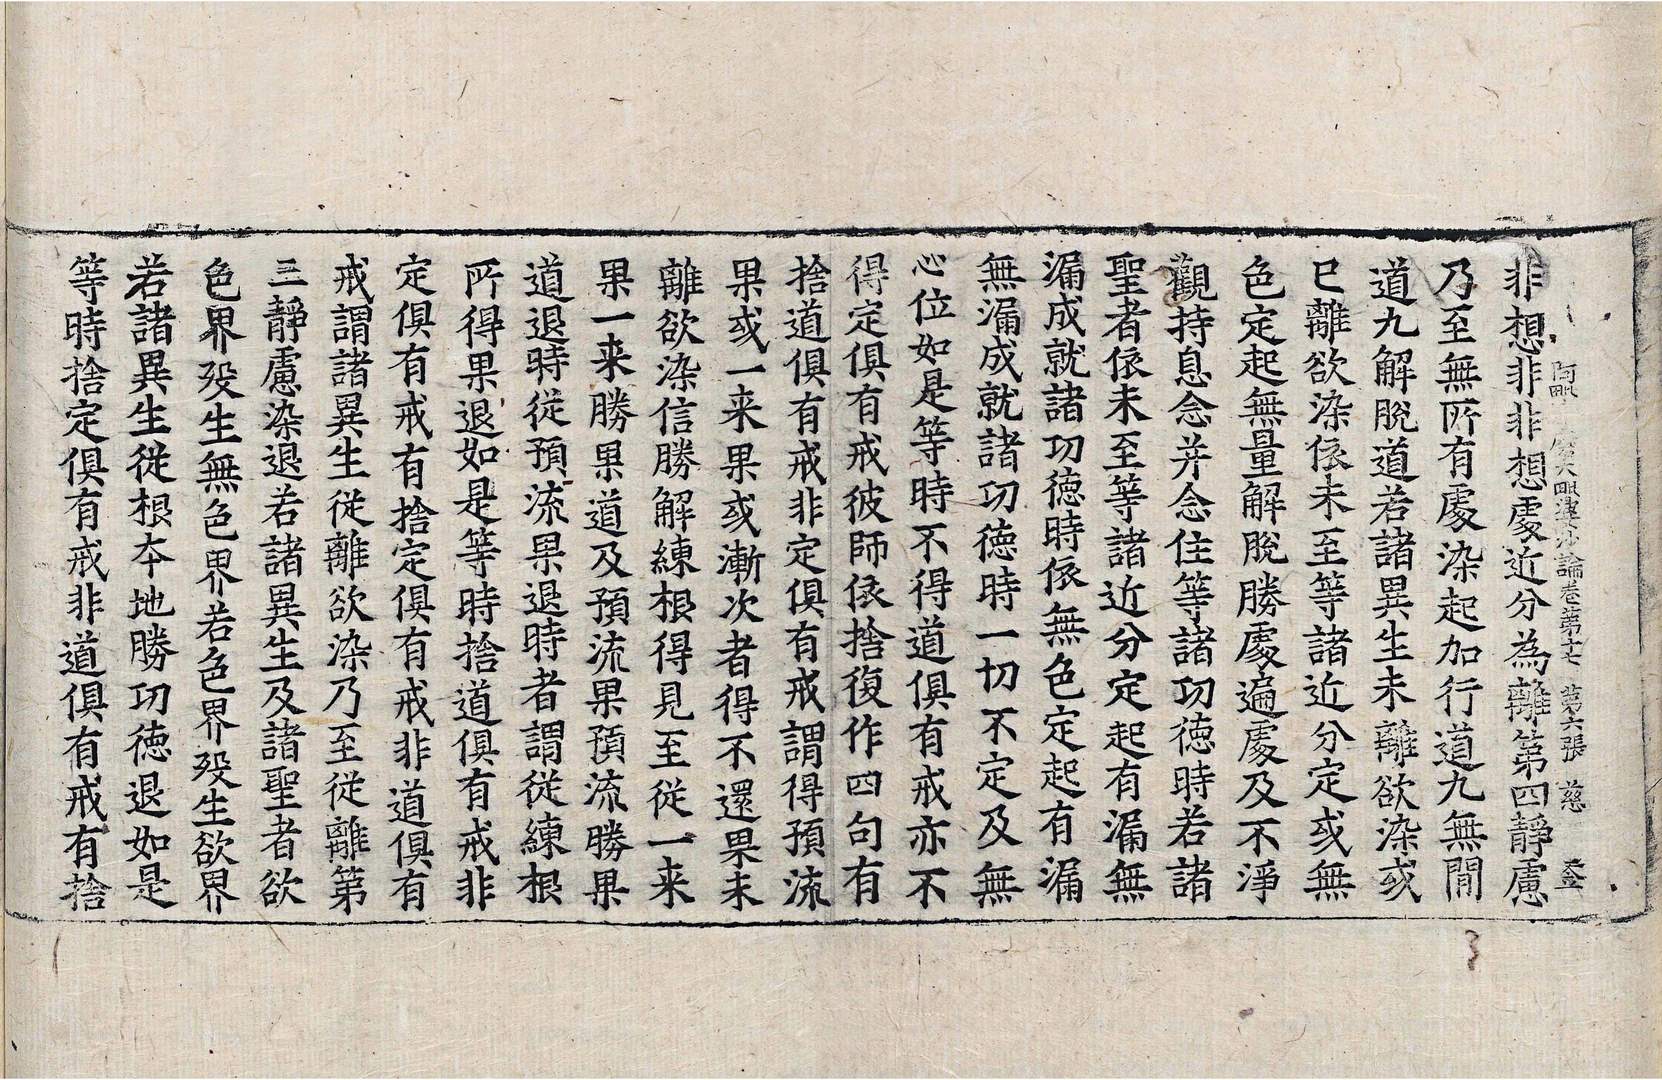 阿毗大毗婆沙論卷第十七 第六張 慈
非想非非想處近分為離第四靜慮
乃至無所有處染起加行道九無間
道九解脫道若諸異生未離欲染或
已離欲染依未至等諸近分定或無
色定起無量解脫勝處遍處及不淨
觀持息念并念住等諸功德時若諸
聖者依未至等諸近分定起有漏無
漏成就諸功德時依無色定起有漏
無漏成就諸功德時一切不定及無
心位如是等時不得道俱有戒亦不
得定俱有戒彼師依捨復作四句有
捨道俱有戒非定俱有戒謂得預流
果或一来果或漸次者得不還果未
離欲染信勝解練根得見至從一来
果一来勝果道及預流果預流勝果
道退時從預流果退時者謂從練根
所得果退如是等時捨道俱有戒非
定俱有戒有捨定俱有戒非道俱有
戒謂諸異生從離欲染乃至從離第
三靜慮染退若諸異生及諸聖者欲
色界歿生無色界若色界歿生欲界
若諸異生從根本地勝功德退如是
等時捨定俱有戒非道俱有戒有捨